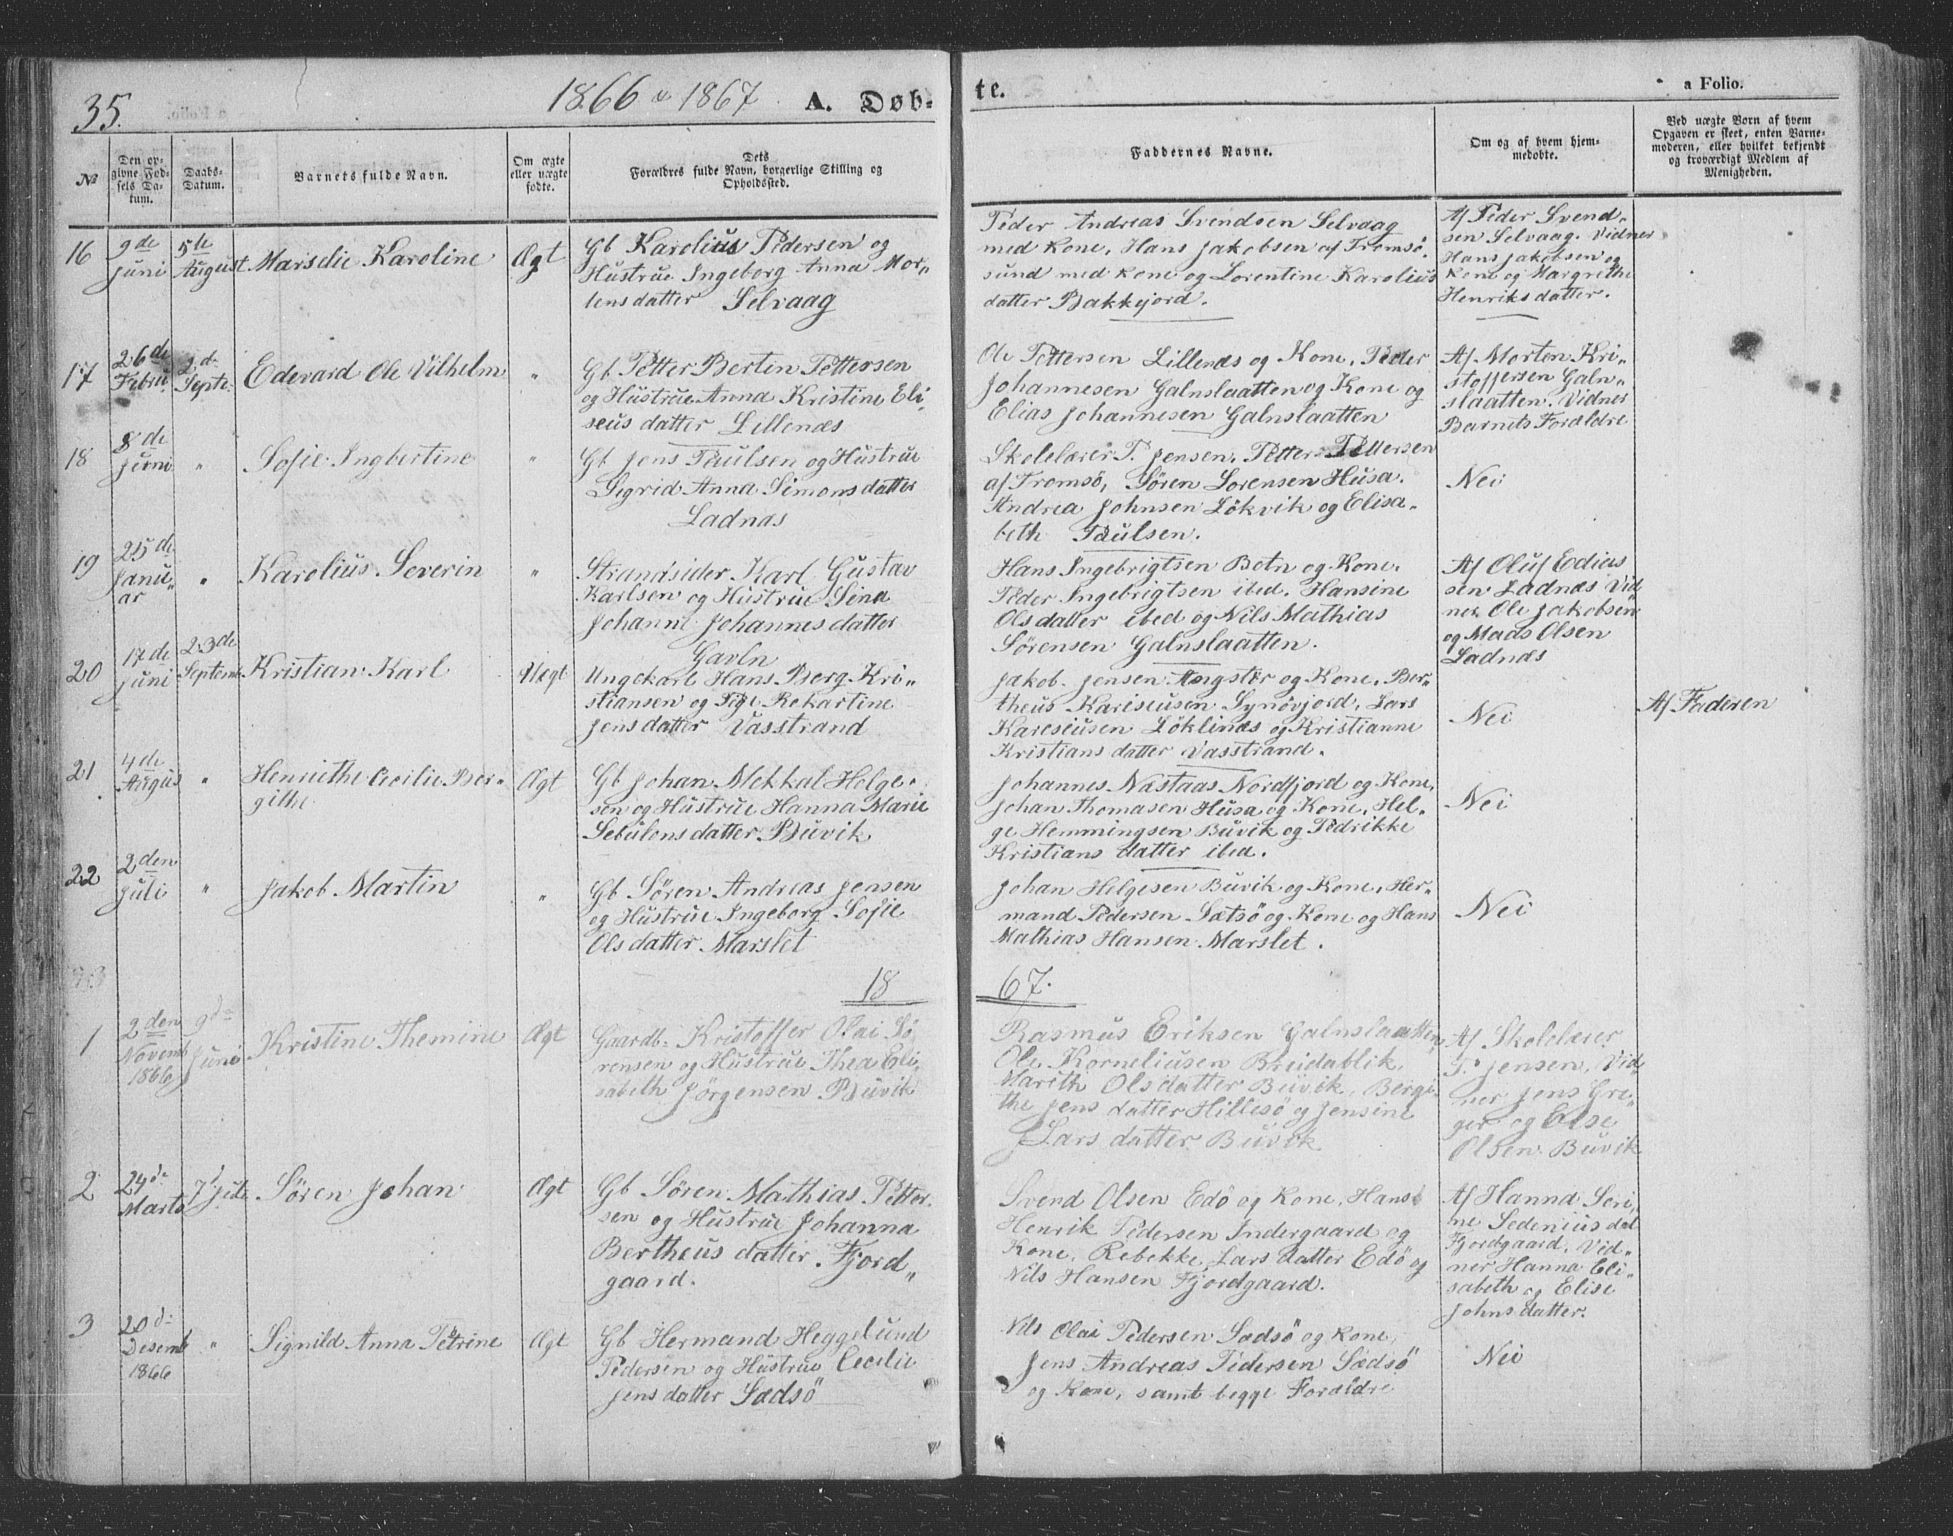 35.
1866 & 1867
A. Døb-
te.
a Folio.
№
Den op-
givne Fød-
sels Da-
tum.
Daabs-
Datum.
Barnets fulde Navn.
Om ægte
eller uægte
fødte.
Dets
Forældres fulde Navn, borgerlige Stilling og
Opholdssted.
Faddernes Navne.
Om og af hvem hjem-
medøbte.
Ved uægte Born af hvem
Opgaven er skeet, enten Barne-
moderen, eller hvilket bekjendt
og troværdigt Medlem af
Menigheden.
16
9de
Juni
5te
August
Marselie Karoline
Ægt
Gb Karolius Pedersen og
Hustrue Ingeborg Anna Mor-
tensdatter Selvaag
Peder Andreas Svendsen Selvaag
med Kone, Hans Jakobsen af Tromsø-
sund med Kone og Lorentine Karolius
datter Bakkejord.
Af Peder Svend-
sen Selvaag. Vidner
Hans Jakobsen og
Kone og Margrethe
Henriksdatter.
17
26de
Febru.
2d.
Septe.
Edevard Ole Vilhelm
"
Gb Petter Bertin Pettersen
og Hustrue Anna Kristine Eli-
seus datter Lillenæs
Ole Pettersen Lillenæs og Kone, Peder
Johannesen Galnslaatten og Kone og
Elias Johannesen Galnslaatten
Af Morten Kri-
stoffersen Galn-
slaatten. Vidner
Barnets Forældre
18
8de
Juni
"
Sofie Ingbertine
"
Gb Jens Paulsen og Hustrue
Sigrid Anna Simonsdatter
Ladnæs
Skolelærer P. Jensen, Petter Pettersen
af Tromsö, Sören Sorensen Husa.
Andrea Johnsen Lökvik og Elisa-
beth Paulsen.
Nei
19
25de
Janu-
ar
"
Karolius Severin
"
Strandsider Karl Gustav
Karlsen og Hustrue Lena
Johanne Johannesdatter
Gavln
Hans Ingebrigtsen Botn og Kone.
Peder Ingebrigtsen ibed. Hansine
Olsdatter ibed og Nils Mathias
Sörensen Galnslaatten.
Af Oluf Edias
sen Ladnæs Vid
ner Ole Jakobsen
og Mads Olsen
Ladnæs
20
17de
Juni
23de
Septem
Kristian Karl
Uægt
Ungekarl Hans Berg Kri-
stiansen og Pige Rekartine
Jensdatter Vasstrand
Jakob Jensen Angstör og Kone, Ber-
theus Kariseusen Synövjord, Lars
Kareseusen Löklinæs og Kristianne
Kristiansdatter Vasstrand.
Nei
Af Faderen
21
4de
Augus
"
Henriethe Cecilie Ber-
githe
Ægt
Gb Johan Mekkal Helge-
sen og Hustrue Hanna Marie
Sebulonsdatter Buvik
Johannes Nastaas Nordfjord og Kone,
Johan Thomasen Husa og Kone, Hel-
ge Hemmingsen Buvik og Pedrikke
Kristians datter ibed.
Nei
22
2den
Juli
"
Jakob Martin
"
Gb Sören Andreas Jensen
og Hustrue Ingeborg Sofie
Olsdatter Marslet
Johan Helgesen Buvik og Kone, Her-
mand Pedersen Sætsö og Kone og Hans
Mathias Hansen Marslet.
Nei
23
18
67.
1
2den
Novemb
1866
9d
Juni
Kristine Themine
Ægt
Gaardb. Kristoffer Olai Sö
rensen og Hustrue Thea Eli-
sabeth Jörgensen Buvik
Rasmus Eriksen Galnslaatten
Ole Korneliusen Breidablik,
Marith Olsdatter Buvik, Berge
the Jens datter Hillesö og Jensine
Lars datter Buvik
Af Skolelærer
P. Jensen, Vid-
ner Jens Gre-
ger og Else
Olsen Buvik
2
24de
Marts
7d Juli
Sören Johan
Ægt
Gb Sören Mathias Petter-
sen og Hustrue Johanna
Bertheus datter Fjord-
gaard.
Svend Olsen Edö og Kone, Hans
Henrik Pedersen Indergaard og
Kone, Rebekke Lars datter Edö og
Nils Hansen Fjordgaard.
Af Hanna Seri-
ne Sedenius dat
Fjordgaard. Vid-
ner Hanna Eli-
sabeth og Elise
Johns datter.
3
20d
Desemb
1866
"
Signild Anna Petrine
Ægt
Gb Hermand Heggelund
Pedersen og Hustrue Cecilie
Jens datter Sædsö
Nils Olai Pedersen Sædsö og Kone,
Jens Andreas Pedersen Sædsö
og Kone, samt begge Forældre
Nei